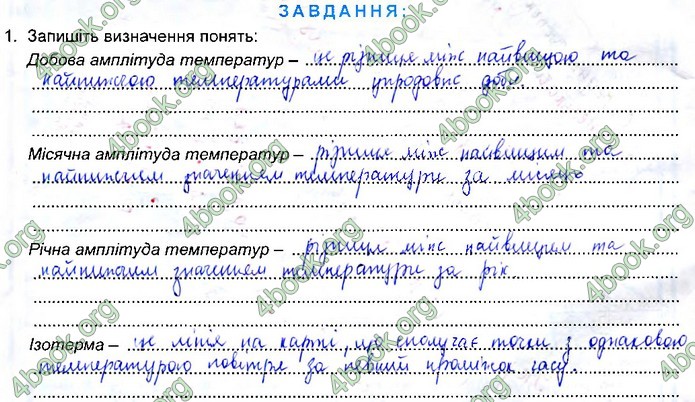 ЗАВДАННЯ:
1. Запишіть визначення понять:
Добова амплітуда температур – це різниця між найвищою та
найнижчою температурами упродовж доби.
Місячна амплітуда температур – різниця між найвищим та
найнижчим значенням температури за місяць
Річна амплітуда температур – різниця між найвищим та
найнижчим значенням температури за рік
Ізотерма – це лінія на карті, що сполучає точки з однаковою
температурою повітря за певний проміжок часу.
4book.org